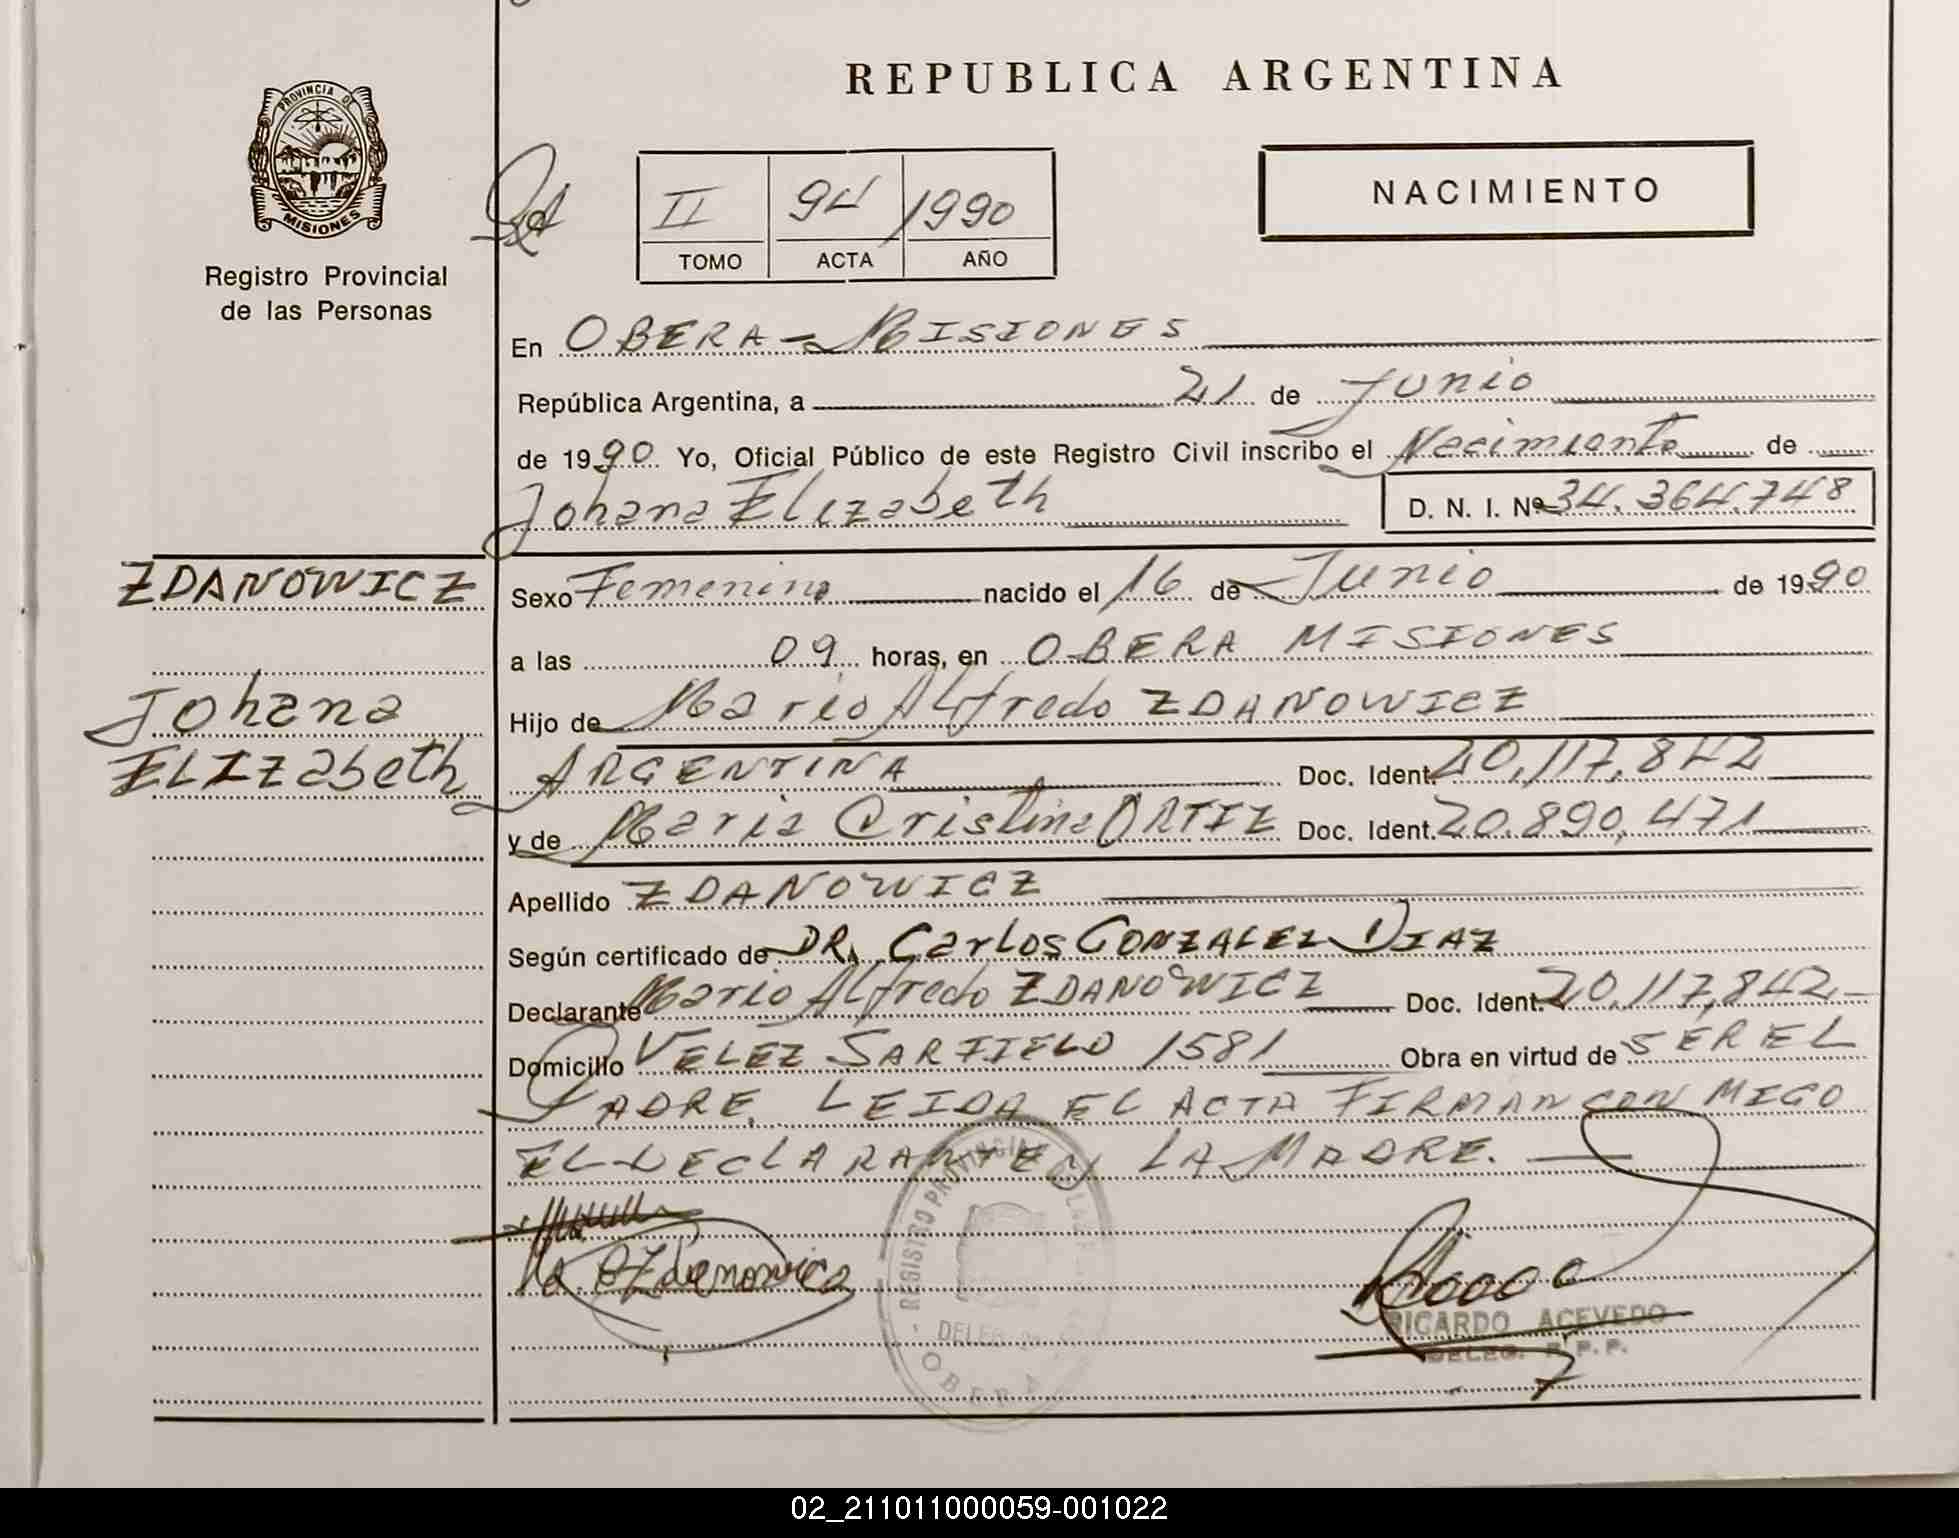 REPUBLICA ARGENTINA
PROVINCIA DE
MISIONES
Registro Provincial
de las Personas
II 94 1990
TOMO ACTA AÑO
NACIMIENTO
En OBERA - MISIONES
República Argentina, a 21 de Junio
de 1990 Yo, Oficial Público de este Registro Civil inscribo el Nacimiento de
Johana Elizabeth D. N. I. Nº 34.364.748
ZDANOWICZ
Johana
Elizabeth
Sexo Femenino nacido el 16 de Junio de 1990
a las 09 horas, en OBERA MISIONES
Hijo de Mario Alfredo ZDANOWICZ
ARGENTINA Doc. Ident. 20.117.842
y de Maria Cristina ORTIZ Doc. Ident. 20.890.471
Apellido ZDANOWICZ
Según certificado de DR. Carlos GONZALEZ DIAZ
Declarante Mario Alfredo ZDANOWICZ Doc. Ident. 20.117.842
Domicilio VELEZ SARFIELD 1581 Obra en virtud de SER EL
PADRE. LEIDA EL ACTA FIRMAN CON MIGO
EL DECLARANTE Y LA MADRE.
REGISTRO PROVINCIAL DE LAS P
DELEG.
OBERA
RICARDO ACEVEDO
DELEG. R. P. P.
02_211011000059-001022